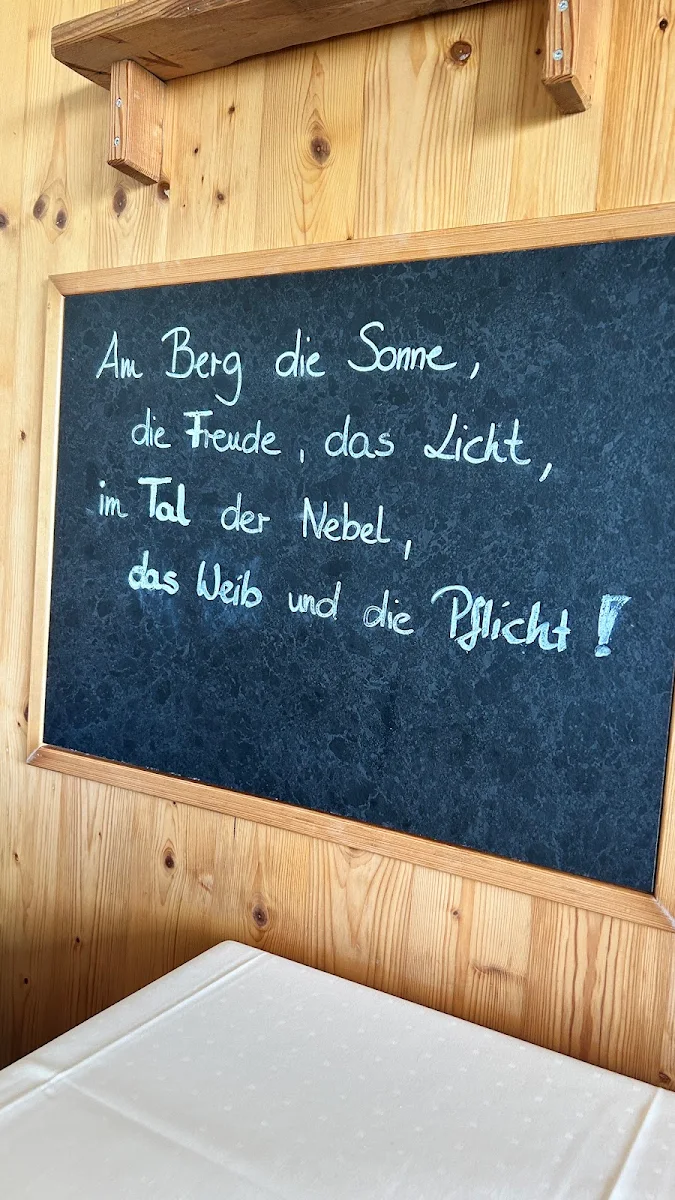 Am Berg die Sonne,
die Freude, das Licht,
im Tal der Nebel,
das Weib und die Pflicht!